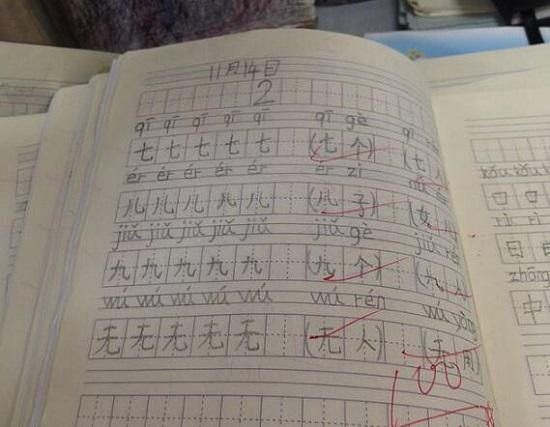 11月14日
2
qī qī qī qī qī qī gè qī
七 七 七 七 七 (七 个) (七 人
ér ér ér ér ér ér zi
儿 儿 儿 儿 儿 (儿 子) (女
jiǔ jiǔ jiǔ jiǔ jiǔ jiǔ gè jiǔ rén
九 九 九 九 九 (九 个) (九 人
wú wú wú wú wú wú rén wú yòng
无 无 无 无 无 (无 人) (无 用)
kǒu kǒu
口 口
rì rì
日 日
zhōng
中